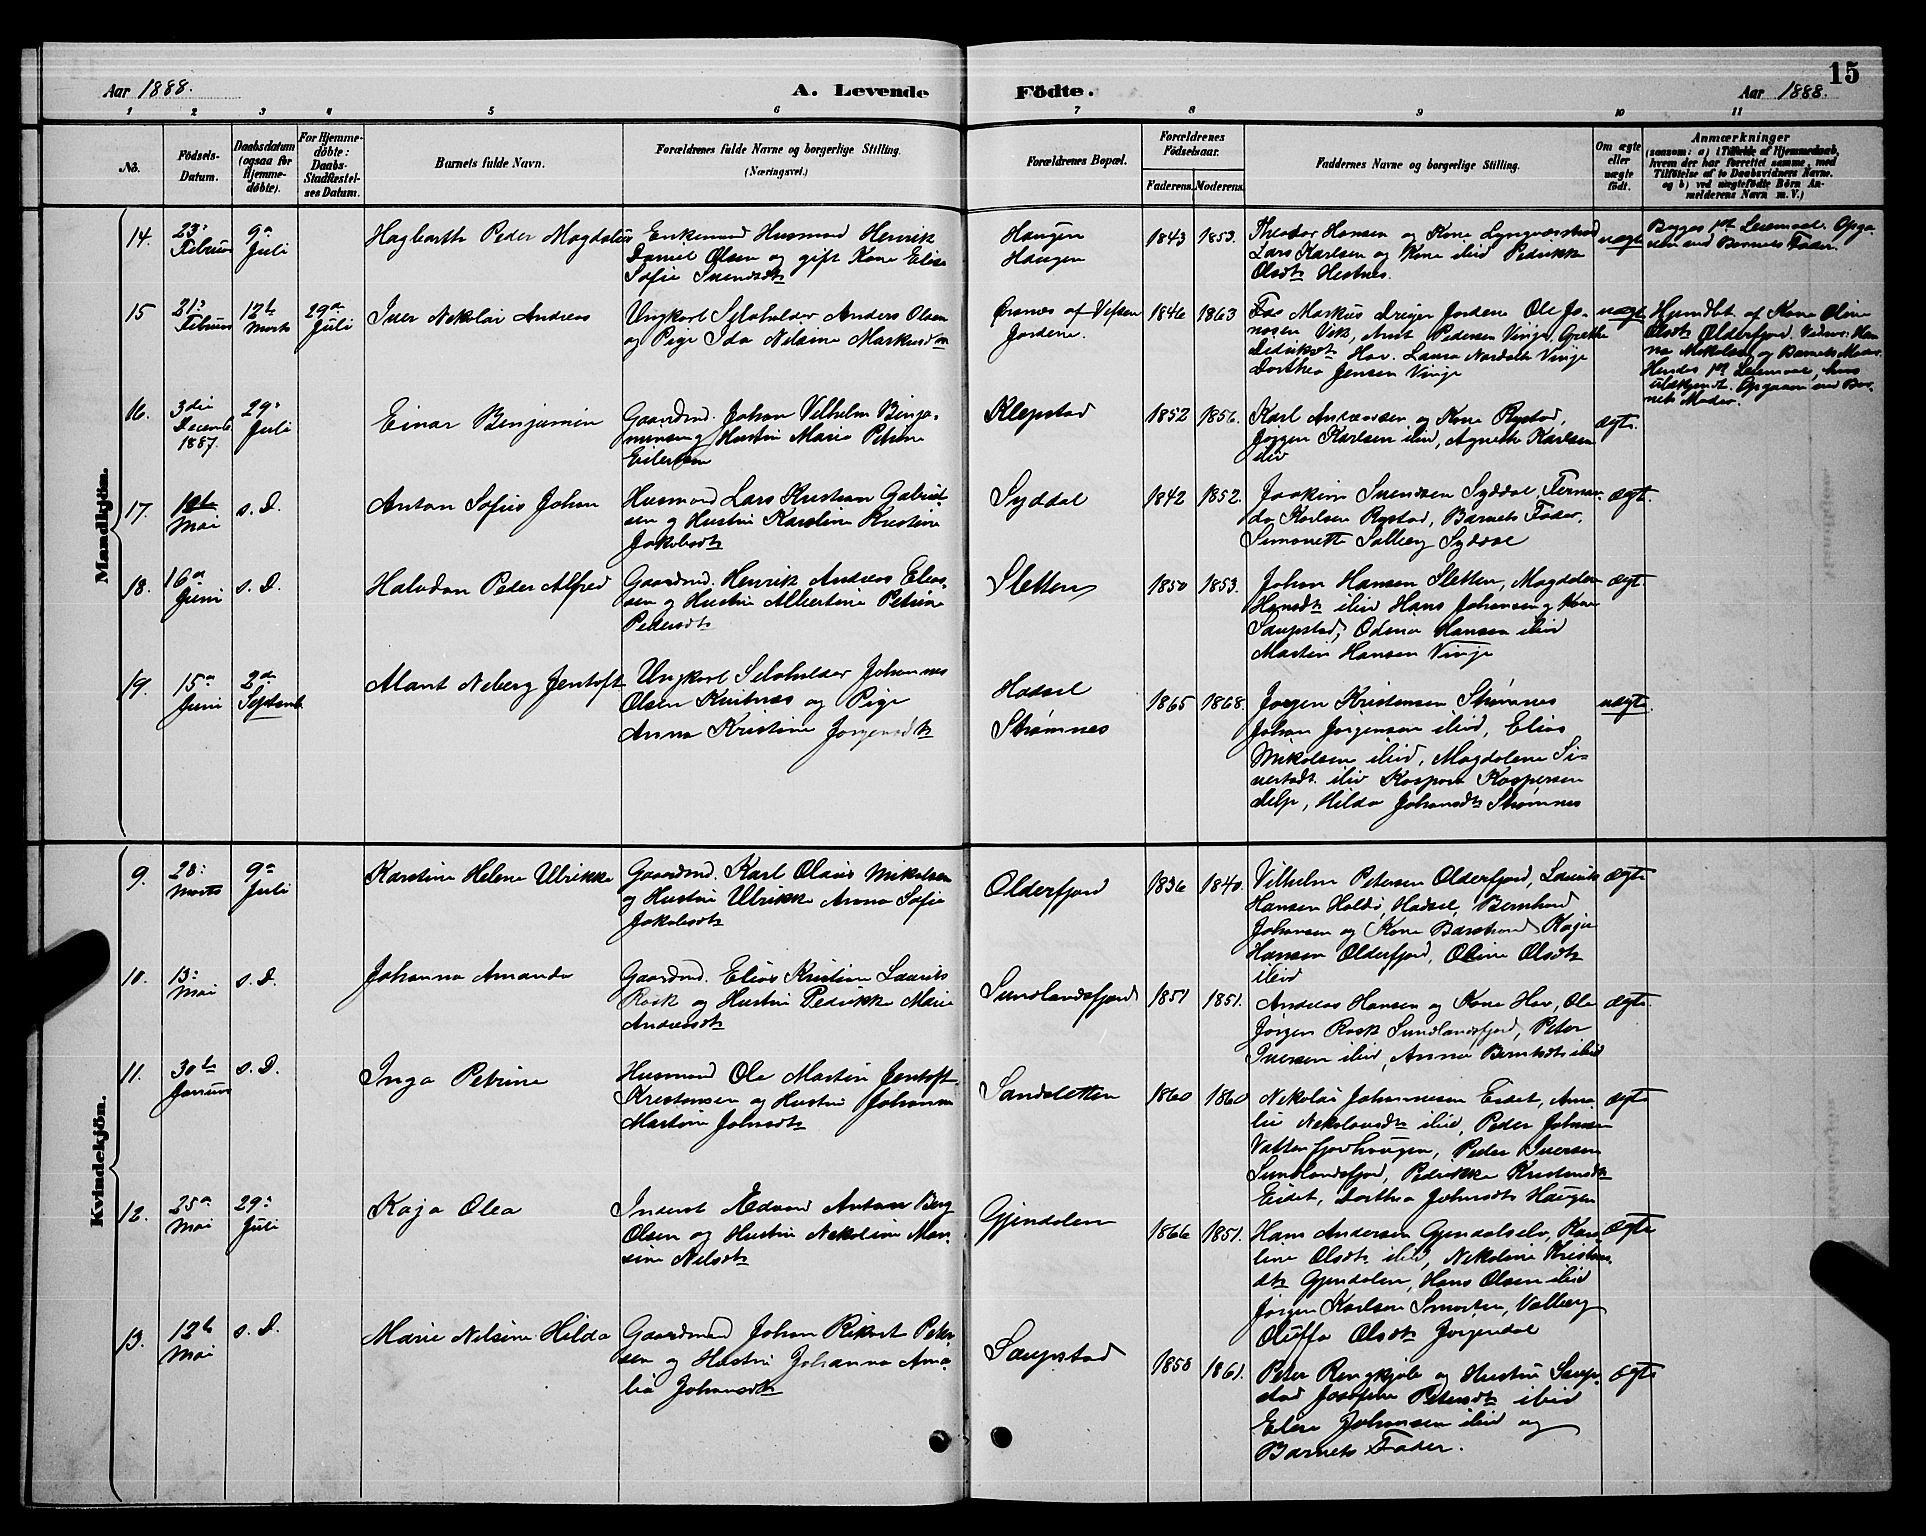 15
Aar 1888.
A. Levende
Födte.
Aar 1888.
1 2 3 4 5 6 7 8 9 10 11
No.
Födsels-
Datum.
Daabsdatum
(ogsaa for
Hjemme-
döbte).
For Hjemme-
döbte:
Daabs-
Stadfæstel-
ses Datum.
Barnets fulde Navn.
Forældrenes fulde Navne og borgerlige Stilling.
(Næringsvei.)
Forældrenes Bopæl.
Forældrenes
Födselsaar.
Faderens. Moderens.
Faddernes Navne og borgerlige Stilling.
Om ægte
eller
uægte
födt.
Anmærkninger
(saasom: a) i Tilfælde af Hjemmedaab,
hvem der har forrettet samme, med
Tilföielse af to Daabsvidners Navne.
og b) ved uægtefödte Börn An-
melderens Navn m. V.)
Mandkjön.
14.
23:
Februar
9a
Juli
Hagbarth Peder Magdalus
Enkemand Husmand Henrik
Daniel Olsen og gift Kone Elise
Sofie Svendsdtr
Haugen
Haugen
1843 1853.
Theodor Hansen og Kone Lyngværstrand
Lars Karlsen og Kone ibid Pedrikke
Olsdtr Hestnes.
uægte
Begges 1ste Leiermaal. Opga-
ven ved Barnets Fader.
15
21:
Februar
12te
Marts
29de
Juli
Iver Nekolai Andreas
Ungkarl Selvholder Anders Olsen
og Pige Ida Nilsine Markusdtr
Ørsnes af Vefsen
Jordene.
1846 1863
Markus Jordene Ole Jo-
nasen Vik, Arnt Pedersen Vinje, Grethe
Didriksdtr Hov. Laura Nordahl Vinje
Dorthea Jensen Vinje
uægte
Hjemdbt af Kone Oline
Olsdtr Olderfjord.
og Barnets Moder.
Hendes 1ste Leiermaal, hans
ubekjendt. Opgaven ved Bar-
nets Moder.
16.
3die
Decemb.
1887.
29:
Juli
Einar Benjamin
Gaardmd. Johan Vilhelm Binja-
minsen og Hustru Marie Petrine
Eilertsen
Klepstad
1852 1856.
Karl Andreassen og Kone Rystad,
Jørgen Karlsen ibid, Agnethe Karlsen
ibid
ægte.
17.
Mai
s. D.
Anton Sofus Johan
Husmand Lars Kristian Gabriel-
sen og Hustru Karoline Kristine
Jakobsdtr
Syddal
1842 1852.
Joakim Svendsen Syddal, Fernan-
da Karlsen Rystad, Barnets Fader,
Simonette Solberg Syddal
ægte
18.
16de
Juni
s. D.
Halvdan Peder Alfred
Gaardmd. Henrik Andreas Elias-
sen og Hustru Albertine Petrine
Pedersdtr
Sletten
1850 1853.
Johan Hansen Sletten, Magdalena
Hansdtr ibid Hans Johansen og Kone
Saupstad, Odena Hansen ibid
Martin Hansen Vinje
ægte
19.
15de
Juni
2den
Septemb
Marit Neberg Jentoft
Ungkarl Selvholder Johannes
Olsen Kvitnes og Pige
Anna Kristine Jørgensdtr
Hadsel
Strømnes
1865 1868.
Jørgen Kristensen Strømnes
Johan Jørgensen ibid, Elias
Mikalsen ibid, Magdalena Si-
vertsdtr. ibid Kaspara Kaspersen
Delp, Hilda Johansdtr Strømnes
uægte
Kvindekjön.
9.
20:
Marts
9a
Juli
Karstine Helene Ulrikke
Gaardmd. Karl Olaus Mikalsen
og Hustru Ulrikke Anna Sofie
Jakobsdtr
Olderfjord
1836 1840.
Vilhelm Petersen Olderfjord, Laurits
Hansen Holdö, Hadsel, Bernhard
Johansen og Kone Barstrand Kaja
Hansen Olderfjord, Oline Olsdtr
ibid
ægte
10.
13:
Mai
s. D.
Johanna Amanda
Gaardmd. Elias Kristian Laurits
Rask og Hustru Pedrikke Marie
Andreasdtr
Sundlandsfjord
1851 1851.
Andreas Hansen og Kone Hov, Ole
Jørgen Rask Sundlandsfjord, Peter
Iversen ibid, Anna Berntsdtr ibid
ægte
11.
30te
Januar
s. D.
Inga Petrine
Husmand Ole Martin Jentoft
Kristensen og Hustru Johanna
Martine Johnsdtr
Sandsletten
1860 1860
Nekolai Johannesen Eidet, Ama-
lie Nekolaisdtr ibid, Peder Johnsen
Vatterfjordhaugen, Peder Iversen
Sundlandsfjord, Pedrikke Kristensdtr
Eidet, Dorthea Johnsdtr Haugen
ægte
12.
25de
Mai
29:
Juli
Kaja Olea
Inderst Edvard Anton Berg
Olsen og Hustru Nekoline Mar-
sine Nilsdtr
Gjendalen
1866 1851.
Hans Andersen Gjendalselv, Karo-
line Olsdtr ibid, Nekoline Kristens-
dtr Gjendalen, Hans Olsen ibid
Jørgen Karlsen Smorten, Valberg
Oluffa Olsdtr Jørgendal
Ægte
13.
12te
Mai
s. D.
Marie Nilsine Hilda
Gaardmand Johan Rikart Peter-
sen og Hustru Johanna Ama-
lia Johansdtr
Saupstad
1858 1861.
Peter Rengkjöb og Hustru Saup-
stad Josefine Petersdtr ibid
Elise Johansen ibid og
Barnets Fader.
ægte